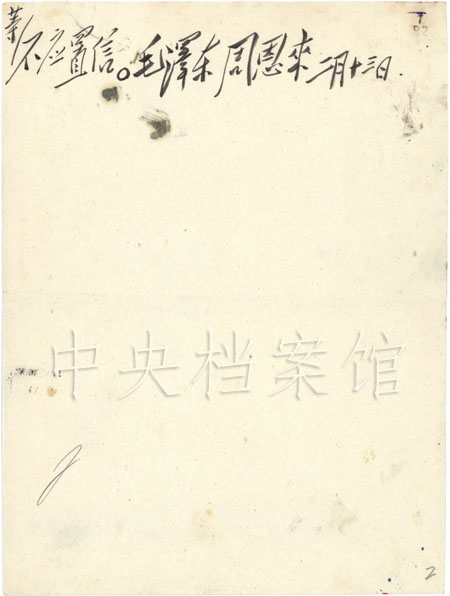 等不应置信。毛澤东周恩來二月十三日.
中央档案馆
2